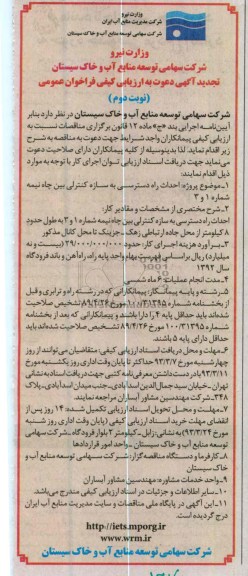 وزارت نیرو
شرکت مدیریت منابع آب ایران
شرکت سهامی توسعه منابع آب و خاک سیستان
وزارت نیرو
شرکت سهامی توسعه منابع آب و خاک سیستان
تجدید آگهی دعوت به ارزیابی کیفی فراخوان عمومی
(نوبت دوم)
شرکت سهامی توسعه منابع آب و خاک سیستان در نظر دارد بنابر
آیین‌نامه اجرایی بند «ج» ماده ۱۲ قانون برگزاری مناقصات نسبت به
ارزیابی کیفی پیمانکاران واجد شرایط جهت دعوت به مناقصه به شرح
زیر اقدام نماید. لذا بدینوسیله از کلیه پیمانکاران دارای صلاحیت دعوت
می‌نماید جهت دریافت اسناد ارزیابی توان اجرای کار با توجه به موارد
ذیل اقدام نمایند:
۱-موضوع پروژه: احداث راه دسترسی به سازه کنترلی بین چاه نیمه
شماره ۱ و ۳
۲-شرح مختصری از مشخصات و مقادیر کار:
احداث راه دسترسی به سازه کنترلی بین چاه نیمه شماره ۱ و ۳ به طول حدود
۸ کیلومتر از محل جاده ارتباطی زهک-جزینک تا محل کانال مذکور
۳-برآورد هزینه اجرای کار: حدود ۲۹/۰۰۰/۰۰۰/۰۰۰ (بیست و نه
میلیارد) ریال براساس فهرست بهای واحد پایه راه، راه آهن و باند فرودگاه
سال ۱۳۹۲
۴-مدت انجام عملیات: ۶ ماه شمسی
۵-رشته و پایه پیمانکار: پیمانکارانی که در رشته راه و ترابری و قبل
از بخشنامه شماره ۱۰۰/۳۱۳۹۵ مورخ ۸۹/۴/۲۶ تشخیص صلاحیت
شده‌اند باید حداقل پایه ۴ را دارا باشند و پیمانکارانی که بعد از بخشنامه
شماره ۱۰۰/۳۱۳۹۵ مورخ ۸۹/۴/۲۶ تشخیص صلاحیت شده‌اند باید
حداقل دارای پایه ۵ باشند.
۶-مهلت و محل دریافت اسناد ارزیابی کیفی: متقاضیان می‌توانند از روز
چهارشنبه مورخ ۹۳/۳/۷ حداکثر تا پایان وقت اداری روز یکشنبه مورخ
۹۳/۳/۱۱ با در دست داشتن معرفی‌نامه کتبی جهت دریافت اسناد به نشانی
تهران-خیابان سید جمال الدین اسدآبادی-جنب میدان اسدآبادی-پلاک
۳۴۸-شرکت مهندسین مشاور آبساران مراجعه نمایند.
۷-مهلت و محل تحویل اسناد ارزیابی تکمیل شده: ۱۴ روز پس از
انقضای مهلت خرید اسناد ارزیابی کیفی (پایان وقت اداری روز شنبه
مورخ ۹۳/۳/۲۴) به نشانی: زابل-کیلومتر ۲ بلوار فرودگاه-شرکت سهامی
توسعه منابع آب و خاک سیستان-واحد امور قراردادها
۸-کارفرما و دستگاه مناقصه گزار: شرکت سهامی توسعه منابع آب و
خاک سیستان
۹-واحد خدمات مشاوره: مهندسین مشاور آبساران
۱۰-سایر اطلاعات و جزئیات در اسناد ارزیابی کیفی مندرج می‌باشد.
۱۱-این آگهی در پایگاه ملی مناقصات و سایت مدیریت منابع آب ایران
درج گردیده است.
http://iets.mporg.ir
www.wrm.ir
شرکت سهامی توسعه منابع آب و خاک سیستان